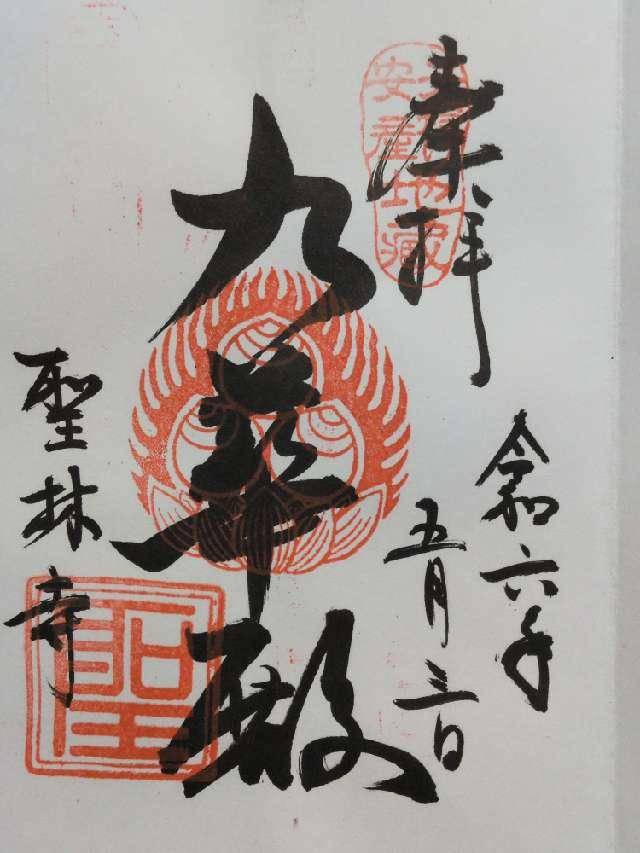 奉拝
安産地蔵
令和六年
五月三日
九華殿
聖林寺
聖